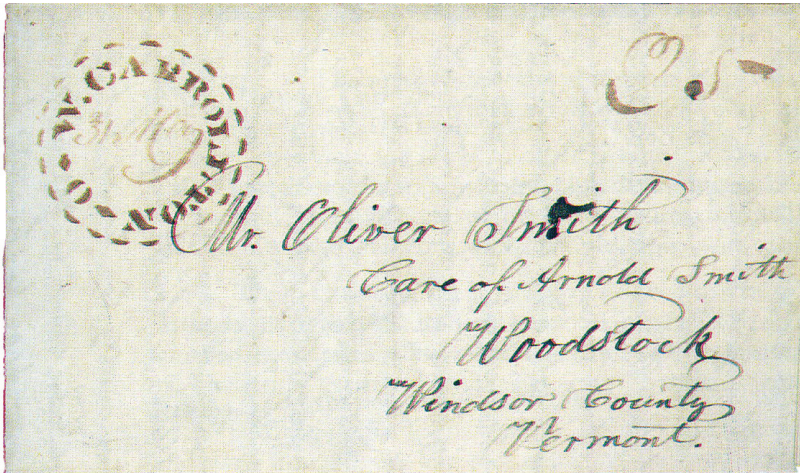 W. CARROLLTON O.
31st May
25
Mr. Oliver Smith
Care of Arnold Smith
Woodstock
Windsor County
Vermont.